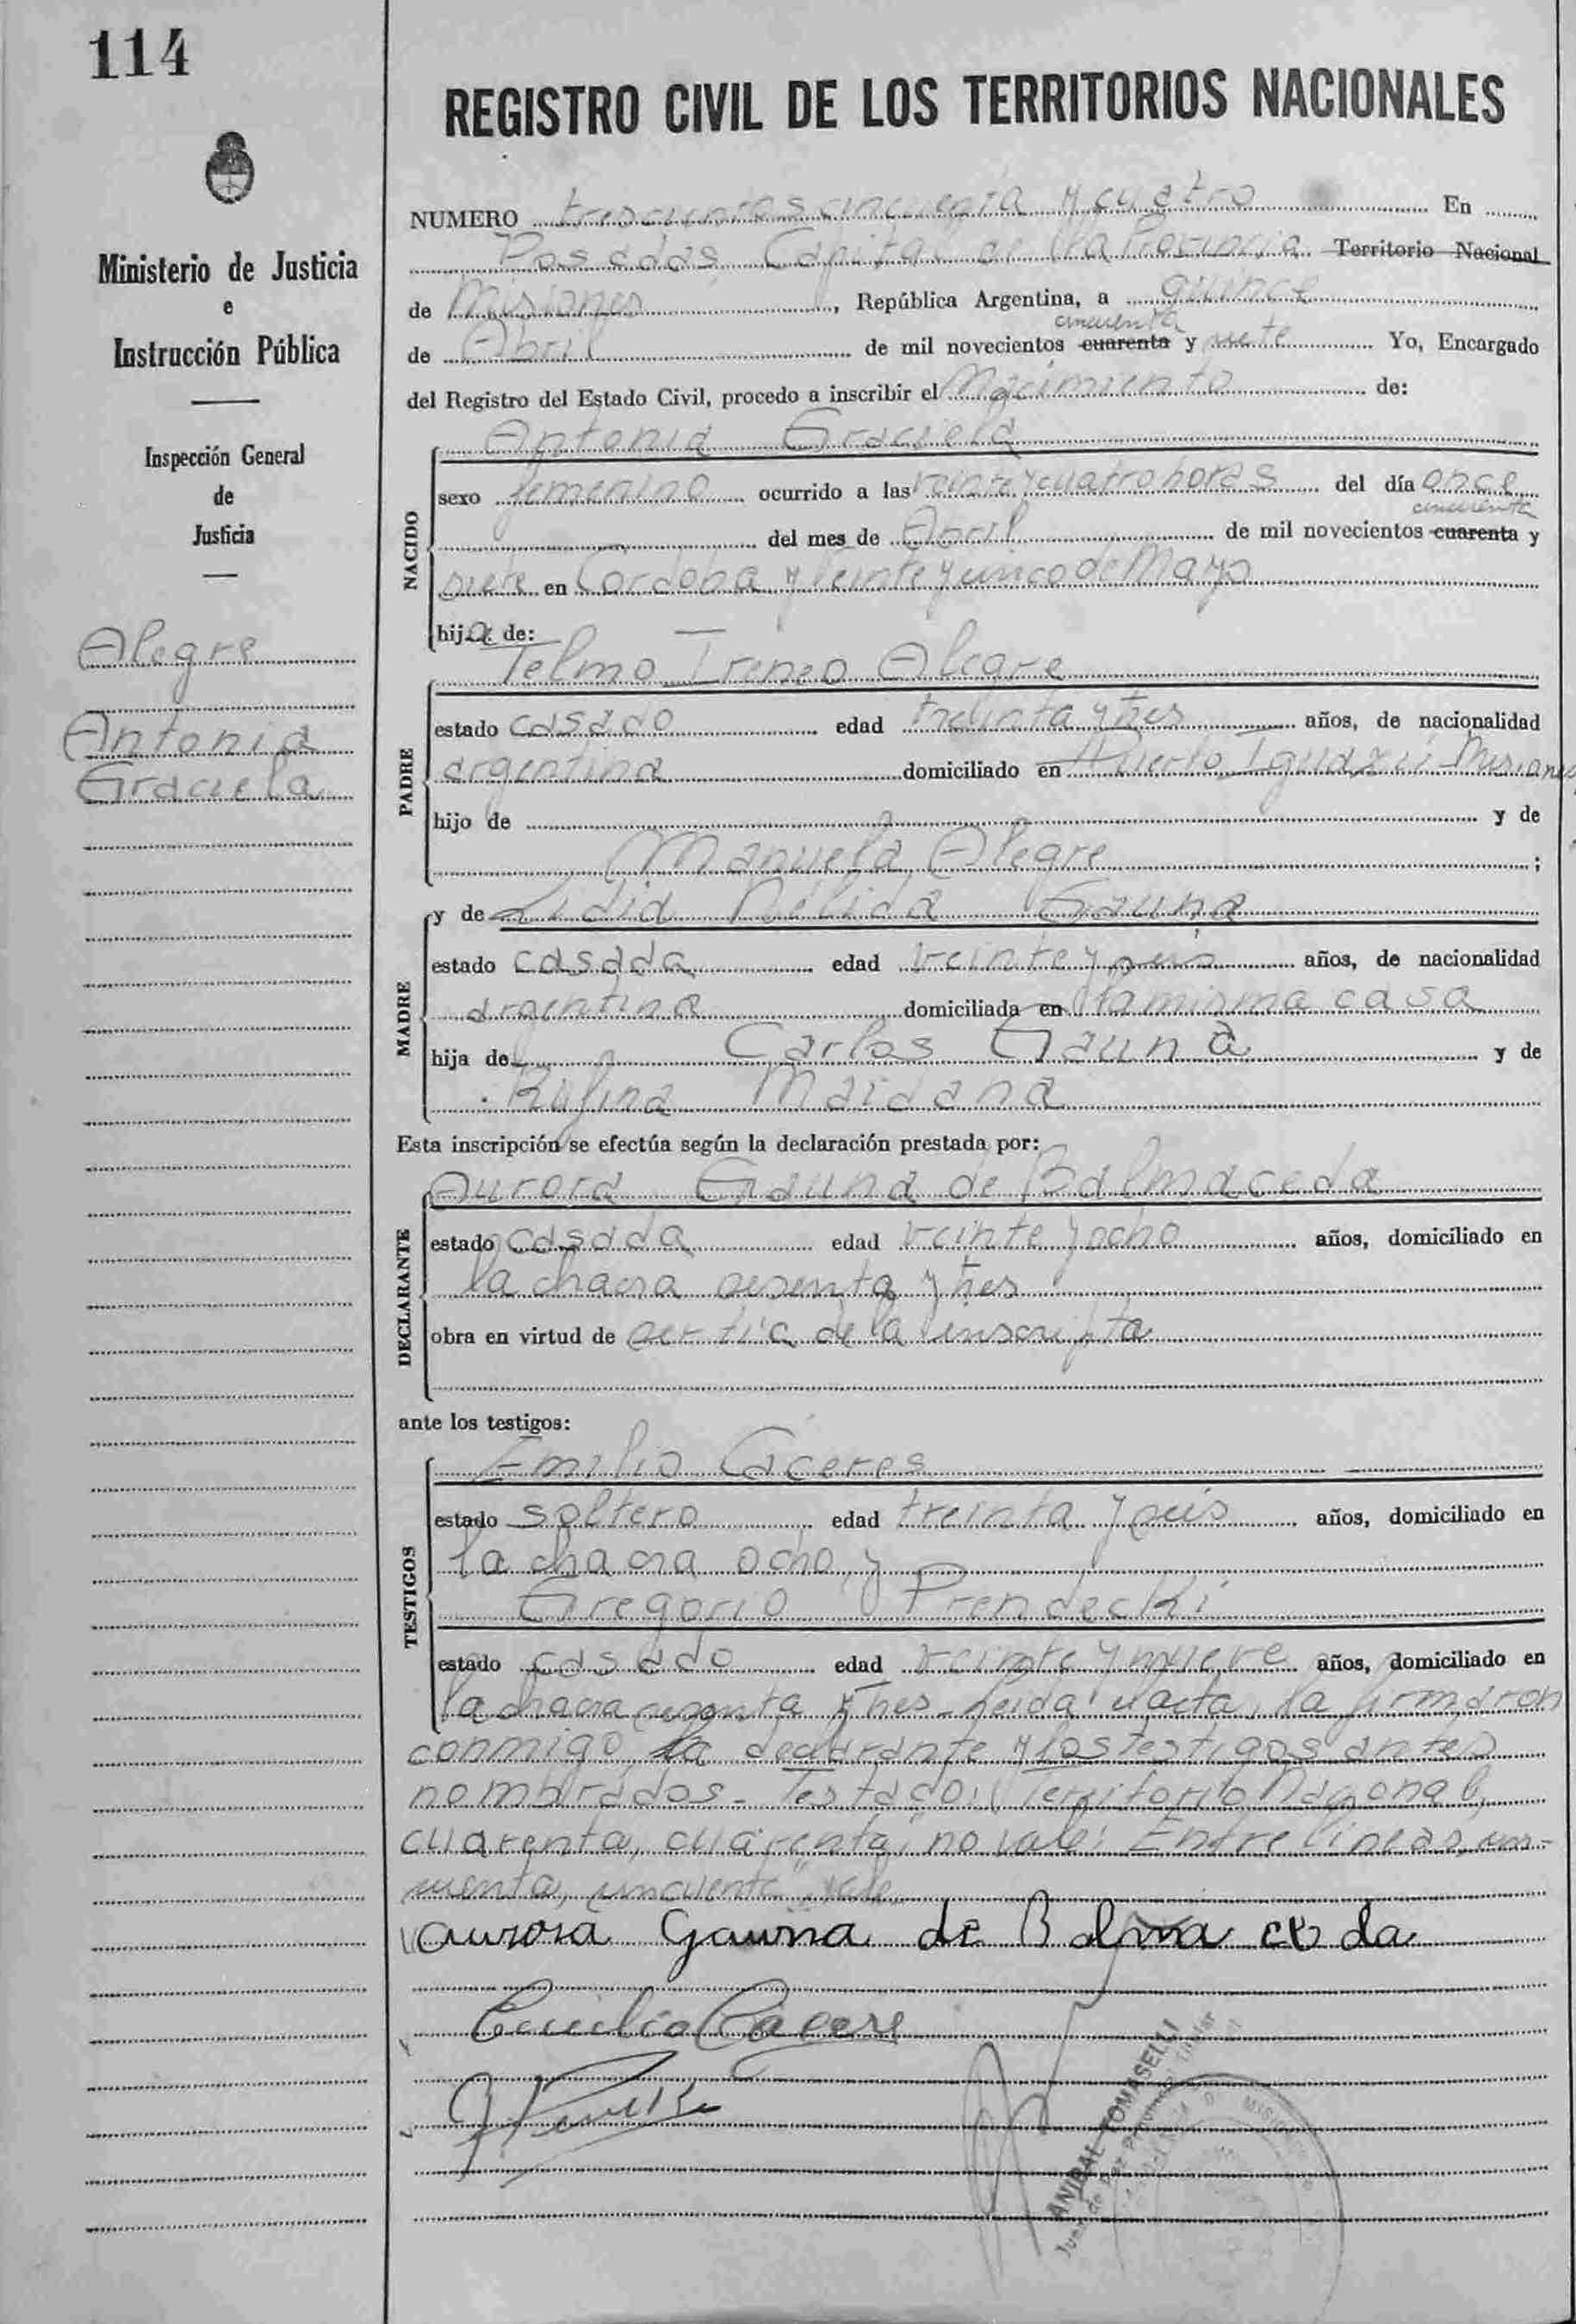 114
Ministerio de Justicia
e
Instrucción Pública
Inspección General
de
Justicia
Alegre
Antonia
Graciela
REGISTRO CIVIL DE LOS TERRITORIOS NACIONALES
NUMERO trescientos cincuenta y cuatro En
Posadas Capital de la Provincia Territorio Nacional
de Misiones, República Argentina, a quince
cincuenta
de Abril de mil novecientos cuarenta y siete Yo, Encargado
del Registro del Estado Civil, procedo a inscribir el Nacimiento de:
Antonia Graciela
NACIDO
sexo femenino ocurrido a las veinte y cuatro horas del día once
cincuenta
del mes de Abril de mil novecientos cuarenta y
siete en Cordoba y Veinte y cinco de Mayo
hija de:
Telmo Ireneo Alegre
PADRE
estado casado edad treinta y tres años, de nacionalidad
argentina domiciliado en Puerto Iguazú Misiones
hijo de y de
Manuela Alegre ;
MADRE
y de Lidia Nélida Gauna
estado casada edad veinte y seis años, de nacionalidad
argentina domiciliada en la misma casa
hija de Carlos Gauna y de
Rufina Maidana
Esta inscripción se efectúa según la declaración prestada por:
Aurora Gauna de Balmaceda
DECLARANTE
estado casada edad veinte y ocho años, domiciliado en
la chacra sesenta y tres
obra en virtud de ser tia de la inscripta
ante los testigos:
TESTIGOS
Emilio Caceres
estado soltero edad treinta y seis años, domiciliado en
la chacra ocho y
Gregorio Prendecki
estado casado edad veinte y nueve años, domiciliado en
la chacra sesenta y tres - Leida el acta, la firmaron
conmigo la declarante y los testigos antes
nombrados - Testado: "Territorio Nacional,
cuarenta, cuarenta," no vale: Entre lineas, cin-
cuenta, cincuenta" vale
aurora gauna de Balmaceda
Emilio Cacere
ANIBAL TOMASELLI
Juez de Paz